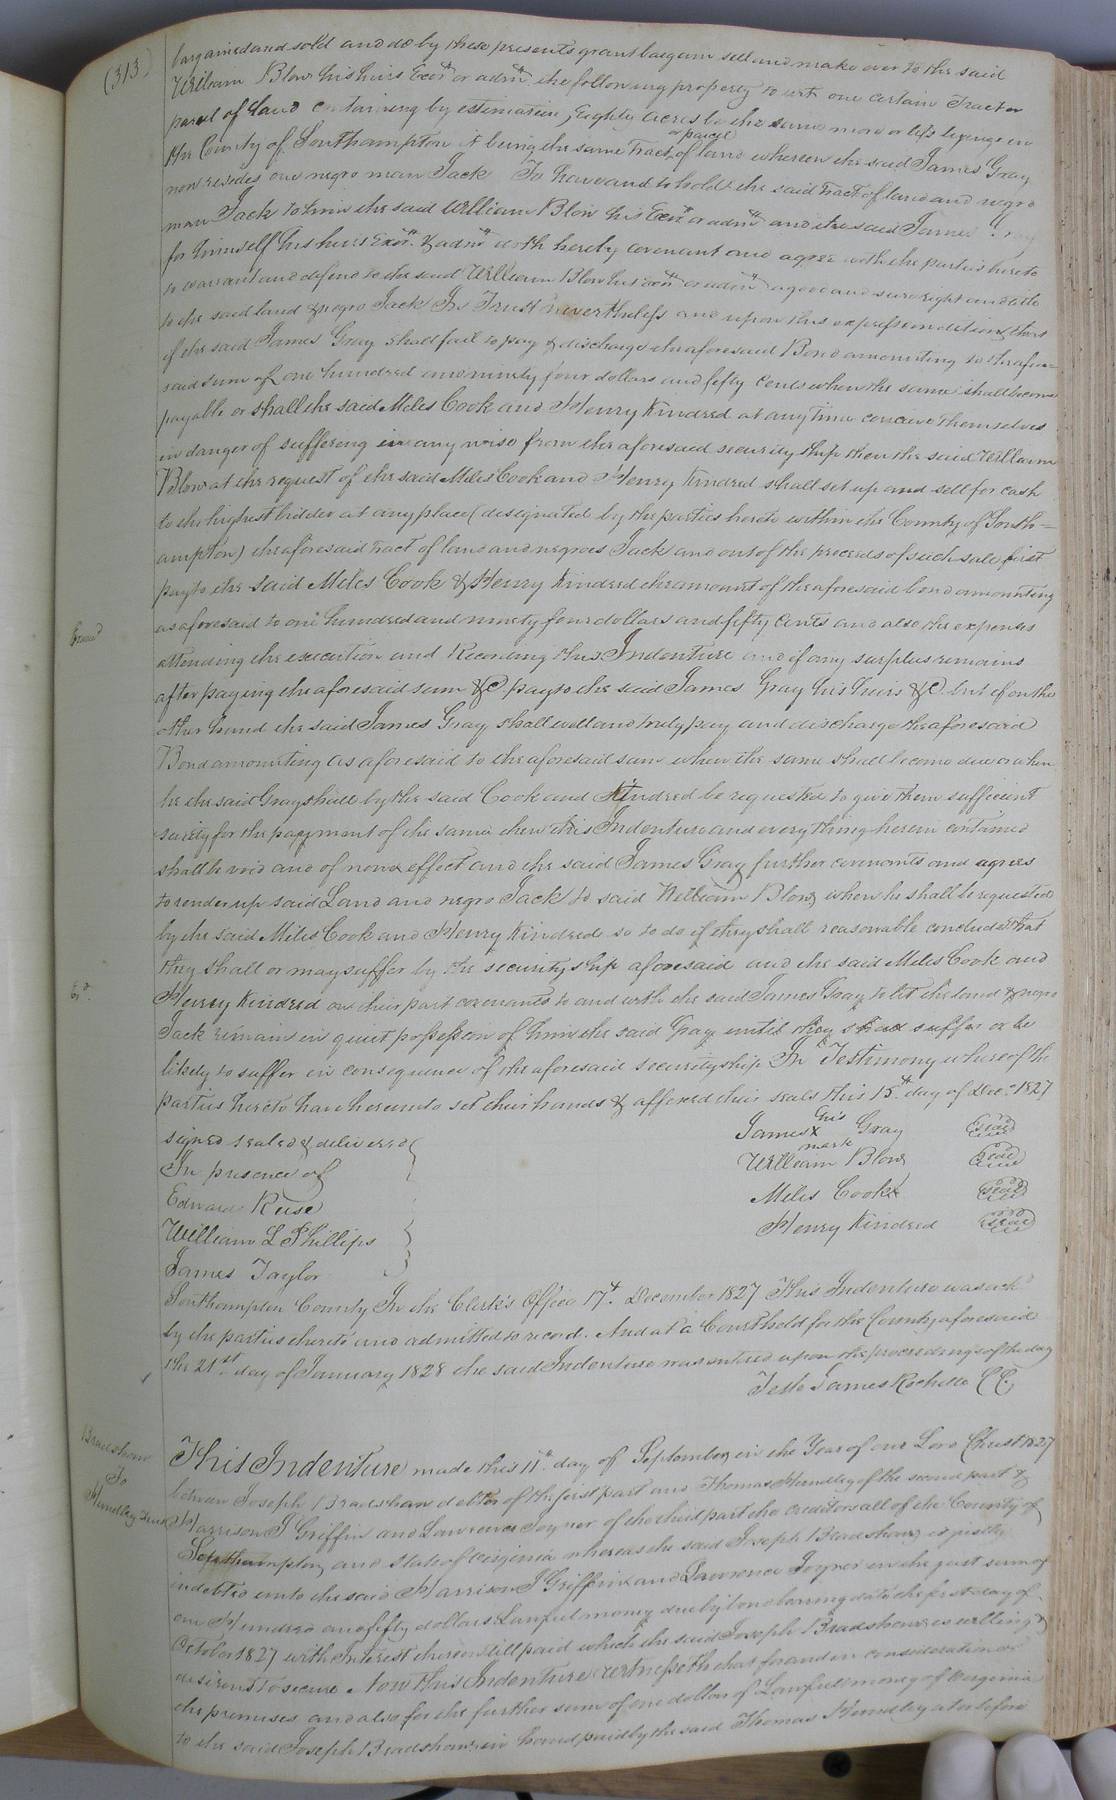 (313)
bargained and sold and do by these presents grant bargain sell and make over to the said
William Blow his heirs Exors or admrs the following property to wit one certain Tract or
parcel of Land containing by estimation Eighty acres be the same more or less lying in
the County of Southampton it being the same Tract or parcel of land whereon the said James Gray
now resides one negro man Jack To have and to hold the said Tract of land and negro
man Jack to him the said William Blow his Exors or admrs and the said James Gray
for himself his heirs Exors & admrs doth hereby covenant and agree with the parties hereto
to warrant and defend to the said William Blow his exors or admrs a good and sure right and title
to the said land & negro Jack In Trust nevertheless and upon this express condition that
if the said James Gray shall fail to pay & discharge the aforesaid Bond amounting to the afore=
said sum of one hundred and ninety four dollars and fifty cents when the same shall become
payable or shall the said Miles Cook and Henry Kindred at any time conceive themselves
in danger of suffering in any wise from the aforesaid security ship then the said William
Blow at the request of the said Miles Cook and Henry Kindred shall set up and sell for cash
to the highest bidder at any place (designated by the parties hereto within the County of South=
ampton) the aforesaid Tract of land and negroes Jack and out of the proceeds of such sale first
pay to the said Miles Cook & Henry Kindred the amount of the aforesaid bond amounting
as aforesaid to one hundred and ninety four dollars and fifty Cents and also the expenses
attending the execution and Recording this Indenture and if any surplus remains
after paying the aforesaid sum &C pay to the said James Gray his heirs &C but if on the
other hand the said James Gray shall well and truly pay and discharge the aforesaid
Bond amounting as aforesaid to the aforesaid sum when the same shall become due or when
he the said Gray shall by the said Cook and Kindred be requested to give them sufficient
surity for the payment of the same then this Indenture and every thing herein contained
shall be void and of none effect and the said James Gray further covenants and agrees
to render up said Land and negro Jack to said William Blow when he shall be requested
by the said Miles Cook and Henry Kindred so to do if they shall reasonable conclude that
they shall or may suffer by the security ship aforesaid and the said Miles Cook and
Henry Kindred on their part covenants to and with the said James Gray to let the land & negro
Jack remain in quiet possession of him the said Gray until they shall suffer or be
likely to suffer in consequence of the aforesaid securityship In Testimony whereof the
parties hereto have hereunto set their hands & affixed their seals this 15th day of Decr 1827
signed sealed & delivered
In presence of
Edward Ruse
William L Phillips
James Taylor
James his X mark Gray seal
William Blow seal
Miles Cook seal
Henry Kindred seal
Southampton County In the Clerk's Office 17th December 1827 This Indenture was ackd
by the parties thereto and admitted to record. And at a Court held for the County aforesaid
the 21st day of January 1828 the said Indenture was entered upon the proceedings of the day
Teste James Rochelle CC
Bradshaw
To
Hundley
This Indenture made this 11th day of September in the Year of our Lord Christ 1827
between Joseph Bradshaw debtor of the first part and Thomas Hundley of the second part &
Harrison J Griffin and Lawrence Joyner of the third part the creditors all of the County of
Southampton and State of Virginia whereas the said Joseph Bradshaw is justly
indebted unto the said Harrison J Griffin and Lawrence Joyner in the just sum of
one Hundred and fifty dollars Lawful money due by bond bearing date the first day of
October 1827 with Interest thereon till paid which the said Joseph Bradshaw is willing &
desirous To secure Now this Indenture witnesseth that for and in consideration of
the premises and also for the further sum of one dollar of Lawful money of Virginia
to the said Joseph Bradshaw in hand paid by the said Thomas Hundley at or before